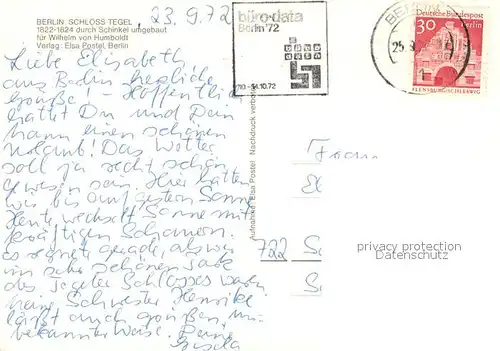 BERLIN, SCHLOSS TEGEL
1822-1824 durch Schinkel umgebaut
für Wilhelm von Humboldt
Verlag: Elsa Postel, Berlin
23.9.72
Liebe Elisabeth
aus Berlin herzliche
Grüße! Hoffentlich
hattet Du und Dein
Mann einen schönen
Urlaub! Das Wetter
soll ja recht schön
gewesen sein. Hier hatten
wir bis auf gestern Sonne
Heute wechselt Sonne mit
kräftigen Schauern.
Es regnete gerade, als wir
im sehr schönen Park
des Tegeler Schlosses waren
Meine Schwester Henrike
läßt auch grüßen, un-
bekannter Weise. Deine
Gisela
Aufnahme: Elsa Postel Nachdruck verboten
büro-data
Berlin '72
-14.10.72
BERLIN
25.9.
1
Deutsche Bundespost
30
Berlin
FLENSBURG/SCHLESWIG
Frau
722
privacy protection
Datenschutz